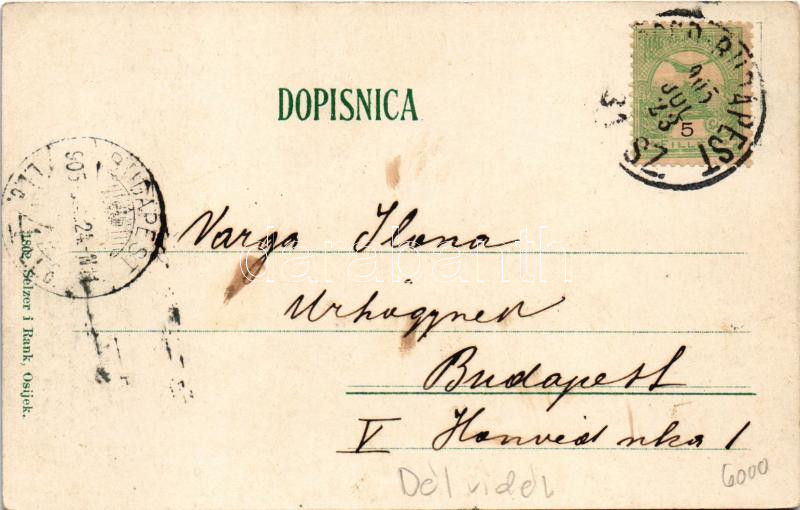 DOPISNICA
5
BUDAPEST
905 JUL 23
BUDAPEST
905
24
Varga Ilona
Urhögynek
Budapest
V Honvéd utca 1
1802. Selzer i Rank, Osijek.
Dél vidék
6000
darabanth